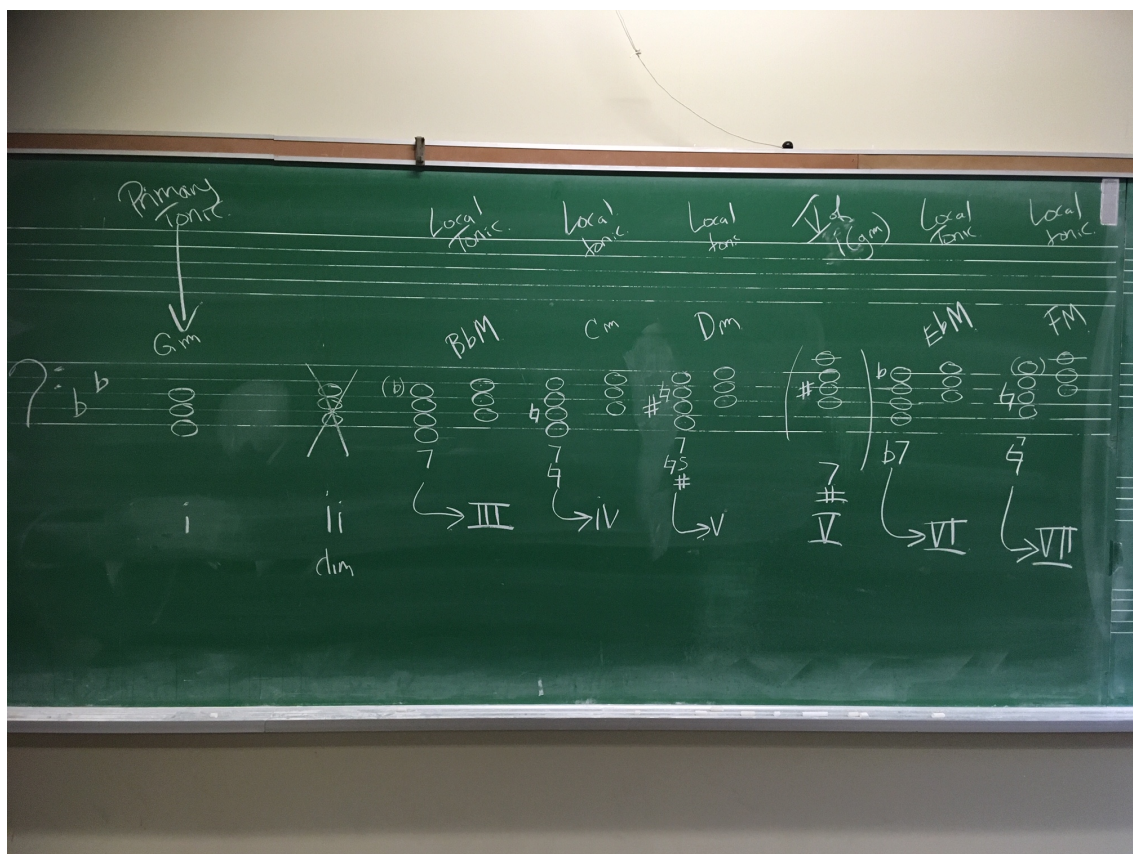 Primary Tonic.
Local Tonic.
Local tonic.
Local tonic
V of i (gm)
Local Tonic
Local tonic.
Gm
BbM
Cm
Dm
EbM
FM
(b)
7
7
♮
7
♮5
#
7
#
b7
7
♮
i
ii
dim
III
iv
v
V
VI
VII